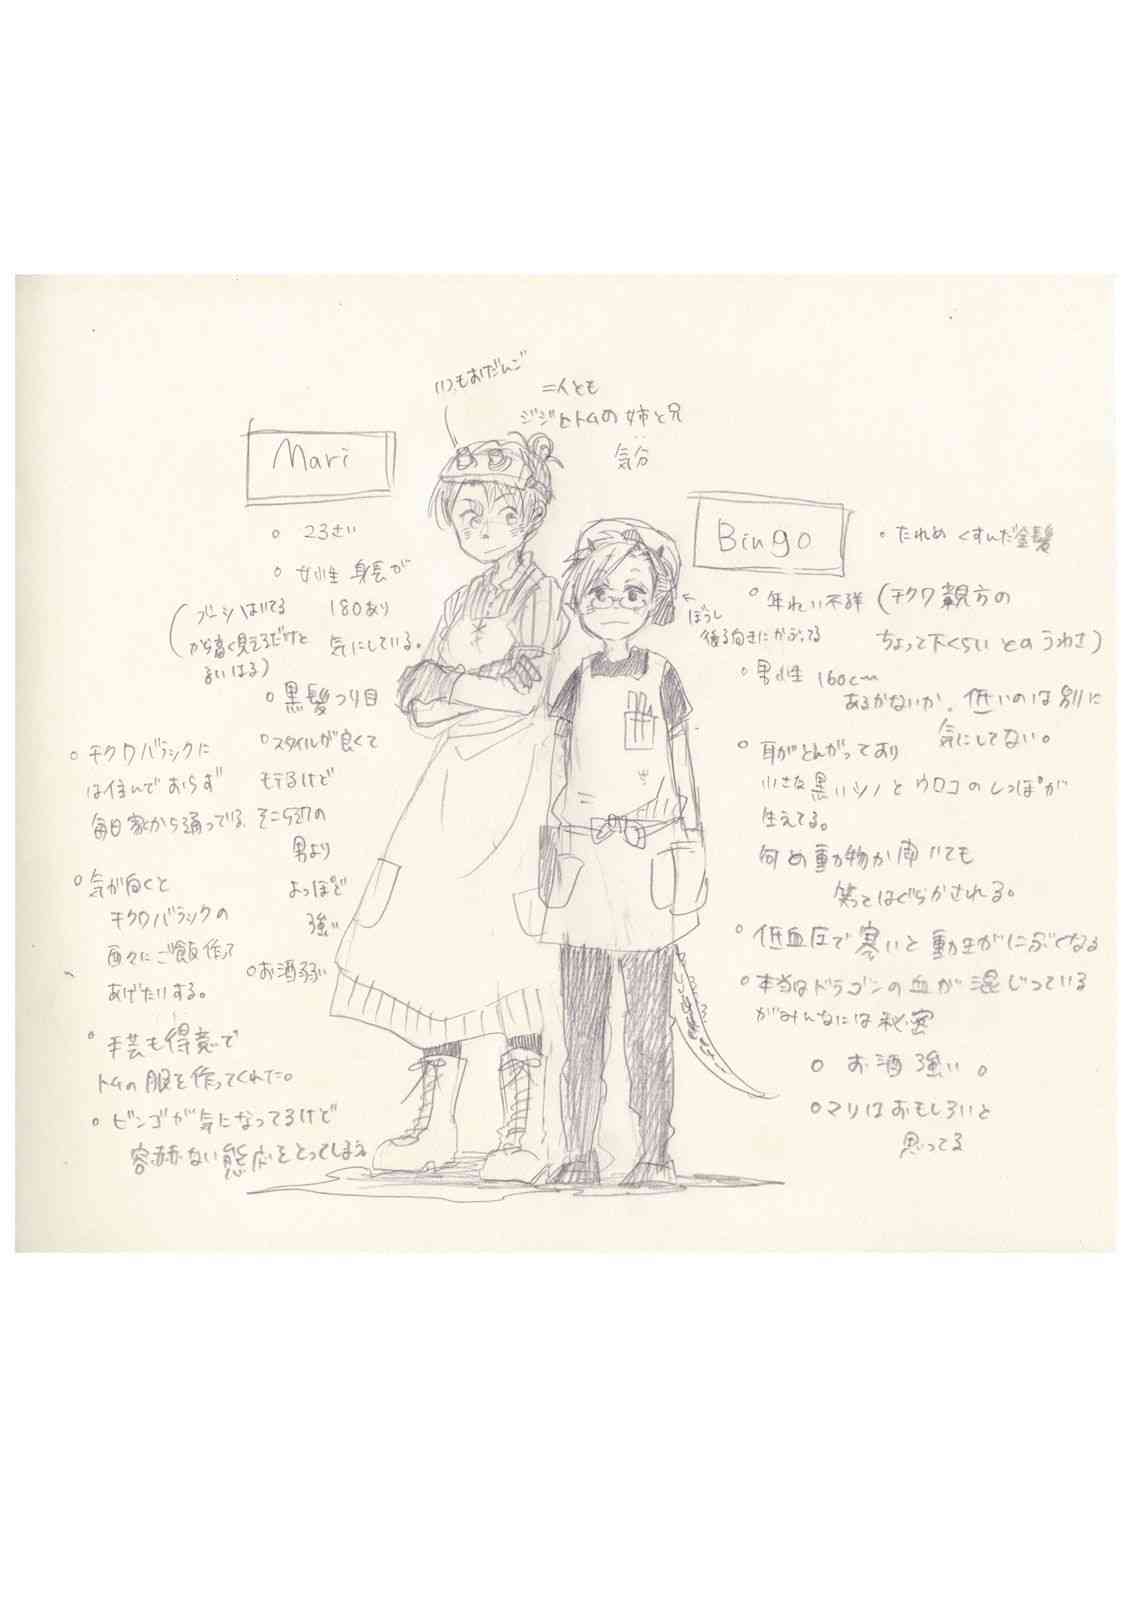 いつもおだんご
二人とも
ジジとトムの姉と兄
気分
Mari
○ 23さい
○ 女性 身長が
180あり
気にしている。
(ブーツはいてる
から高く見えるだけと
言いはる)
○ 黒髪つり目
○ スタイルが良くて
モテるけど
そこらの
男より
よっぽど
強い
○ お酒弱い
○ チクワバラックに
は住んでおらず
毎日家から通っている。
○ 気が向くと
チクワバラックの
面々にご飯作って
あげたりする。
○ 手芸も得意で
トムの服を作ってくれた。
○ ビンゴが気になってるけど
容赦ない態度をとってしまう
Bingo
ぼうし
後ろ向きにかぶってる
○ たれめ くすんだ金髪
○ 年れい不詳 (チクワ親方の
ちょって下くらいとのうわさ)
○ 男性 160cm
あるかないか。低いのは別に
気にしてない。
○ 耳がとんがってあり
小さな黒いツノとウロコのしっぽが
生えてる。
何の動物か聞いても
笑ってはぐらかされる。
○ 低血圧で寒いと動きがにぶくなる
○ 本当はドラゴンの血が混じっている
がみんなには秘密
○ お酒強い。
○ マリはおもしろいと
思ってる